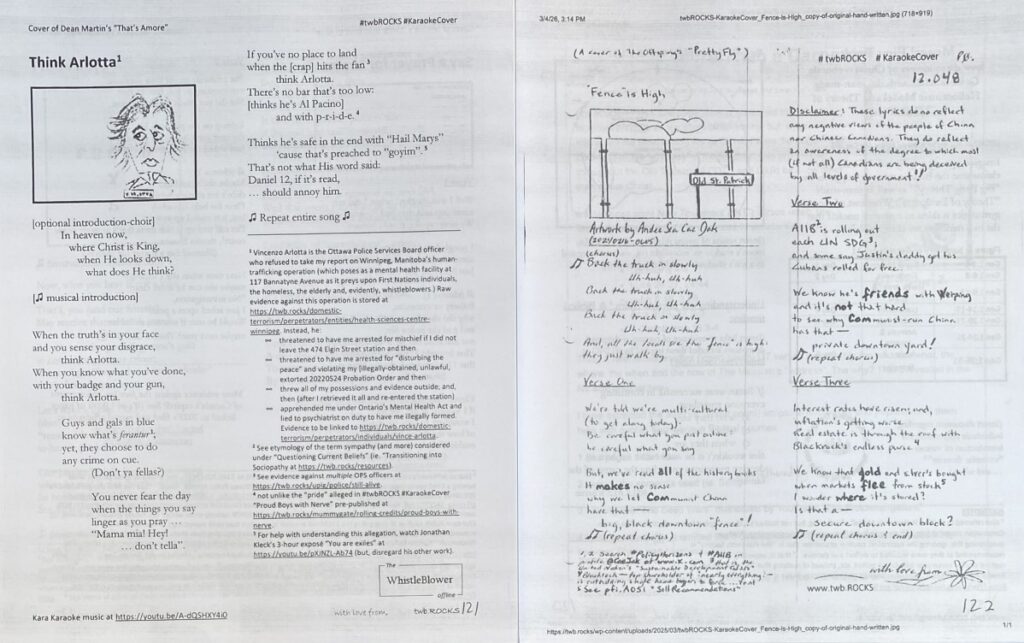 Cover of Dean Martin's "That's Amore"
#twbROCKS #KaraokeCover
Think Arlotta¹
[optional introduction-choir]
In heaven now,
where Christ is King,
when He looks down,
what does He think?
[♫ musical introduction]
When the truth's in your face
and you sense your disgrace,
think Arlotta.
When you know what you've done,
with your badge and your gun,
think Arlotta.
Guys and gals in blue
know what's feranter²;
yet, they choose to do
any crime on cue.
(Don't ya fellas?)
You never fear the day
when the things you say
linger as you pray …
"Mama mia! Hey!
… don't tella".
Kara Karaoke music at https://youtu.be/A-dQSHXY4i0
If you've no place to land
when the [crap] hits the fan³
think Arlotta.
There's no bar that's too low:
[thinks he's Al Pacino]
and with p-r-i-d-e.⁴
Thinks he's safe in the end with "Hail Marys"
'cause that's preached to "goyim".⁵
That's not what His word said:
Daniel 12, if it's read,
… should annoy him.
♫ Repeat entire song ♫
¹ Vincenzo Arlotta is the Ottawa Police Services Board officer
who refused to take my report on Winnipeg, Manitoba's human-
trafficking operation (which poses as a mental health facility at
117 Bannatyne Avenue as it preys upon First Nations individuals,
the homeless, the elderly and, evidently, whistleblowers.) Raw
evidence against this operation is stored at
https://twb.rocks/domestic-
terrorism/perpetrators/entities/health-sciences-centre-
winnipeg. Instead, he:
threatened to have me arrested for mischief if I did not
leave the 474 Elgin Street station and then
threatened to have me arrested for "disturbing the
peace" and violating my [illegally-obtained, unlawful,
extorted 20220524 Probation Order and then
threw all of my possessions and evidence outside; and,
then (after I retrieved it all and re-entered the station)
apprehended me under Ontario's Mental Health Act and
lied to psychiatrist on duty to have me illegally formed.
Evidence to be linked to https://twb.rocks/domestic-
terrorism/perpetrators/individuals/vince-arlotta.
² See etymology of the term sympathy (and more) considered
under "Questioning Current Beliefs" (ie. "Transitioning into
Sociopathy at https://twb.rocks/resources).
³ See evidence against multiple OPS officers at
https://twb.rocks/upix/police/still-alive.
⁴ not unlike the "pride" alleged in #twbROCKS #KaraokeCover
"Proud Boys with Nerve" pre-published at
https://twb.rocks/mummygate/rolling-credits/proud-boys-with-
nerve.
⁵ For help with understanding this allegation, watch Jonathan
Kleck's 3-hour exposé "You are exiles" at
https://youtu.be/pXJNZL-Ab74 (but, disregard his other work).
The
WhistleBlower
offline
with love from, twb.ROCKS 121
3/4/26, 3:14 PM
twbROCKS-KaraokeCover_Fence-is-High_copy-of-original-hand-written.jpg (718×919)
(A cover of The Offspring's "Pretty Fly")
"Fence" is High
Old St. Patrick
Artwork by
(chorus)
♫ Back the truck in slowly
Uh-huh, Uh-huh
Back the truck in slowly
Uh-huh, Uh-huh
Back the truck in slowly
Uh-huh, Uh-huh
And, all the locals see the "fence" is high:
they just walk by
Verse One
We're told we're multi-cultural
(to get along today):
Be careful what you post online:
be careful what you say
But, we've read all of the history books
It makes no sense
why we let Communist China
have that —
big, black downtown "fence"!
♫ (repeat chorus)
1, 2 Search #PolicyHorizons & #AIIB in
⁵ See pti.A051 "Sell Recommendations"
# twbROCKS # KaraokeCover
12.048
Disclaimer: These lyrics do no reflect
any negative views of the people of China
nor Chinese Canadians. They do reflect
an awareness of the degree to which most
(if not all) Canadians are being deceived
by all levels of government¹!
Verse Two
AIIB² is rolling out
each UN SDG³;
and some say Justin's daddy got his
Cubans rolled for free.
We know he's friends with
and it's not that hard
to see why Communist-run China
has that —
private downtown yard!
♫ (repeat chorus)
Verse Three
Interest rates have risen; and,
inflation's getting worse.
Real estate is through the roof with
Blackrock's⁴ endless purse
We know that gold and silver's bought
when markets flee from stock⁵
I wonder where it's stored?
Is that a —
secure downtown block?
♫ (repeat chorus & end)
with love from,
www.twb.ROCKS
122
https://twb.rocks/wp-content/uploads/2025/03/twbROCKS-KaraokeCover_Fence-is-High_copy-of-original-hand-written.jpg
1/1